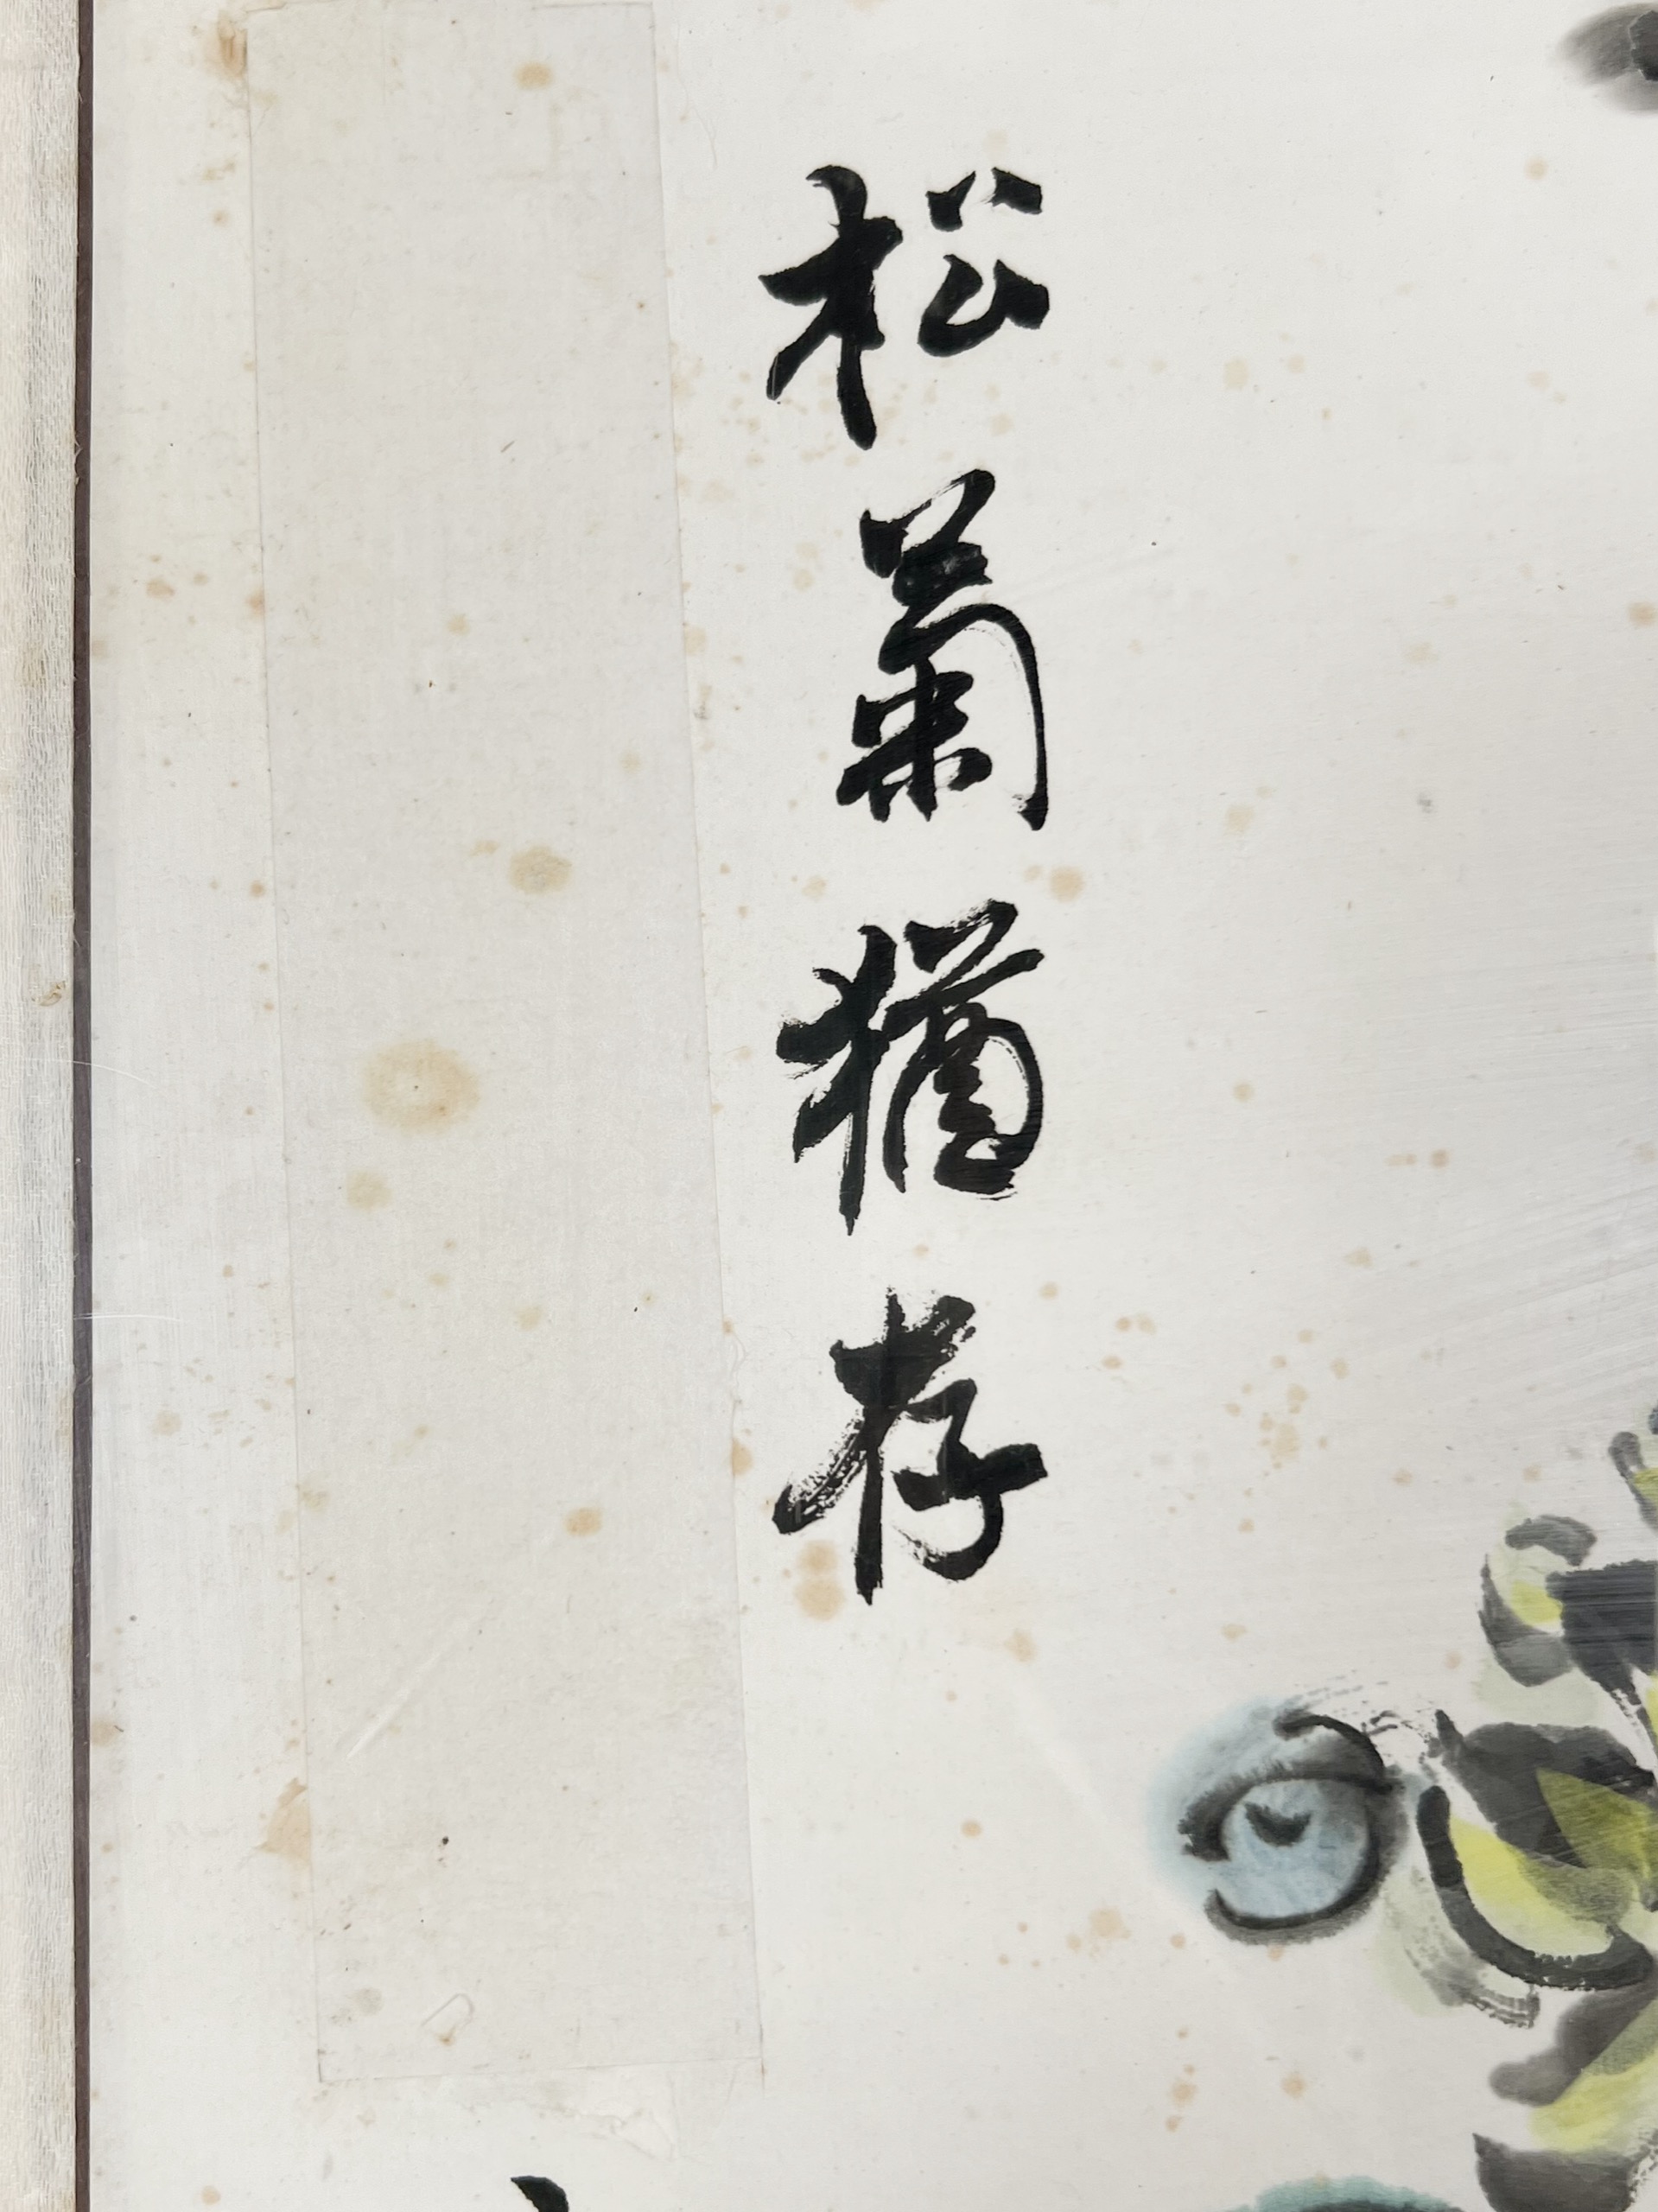 松菊猶存